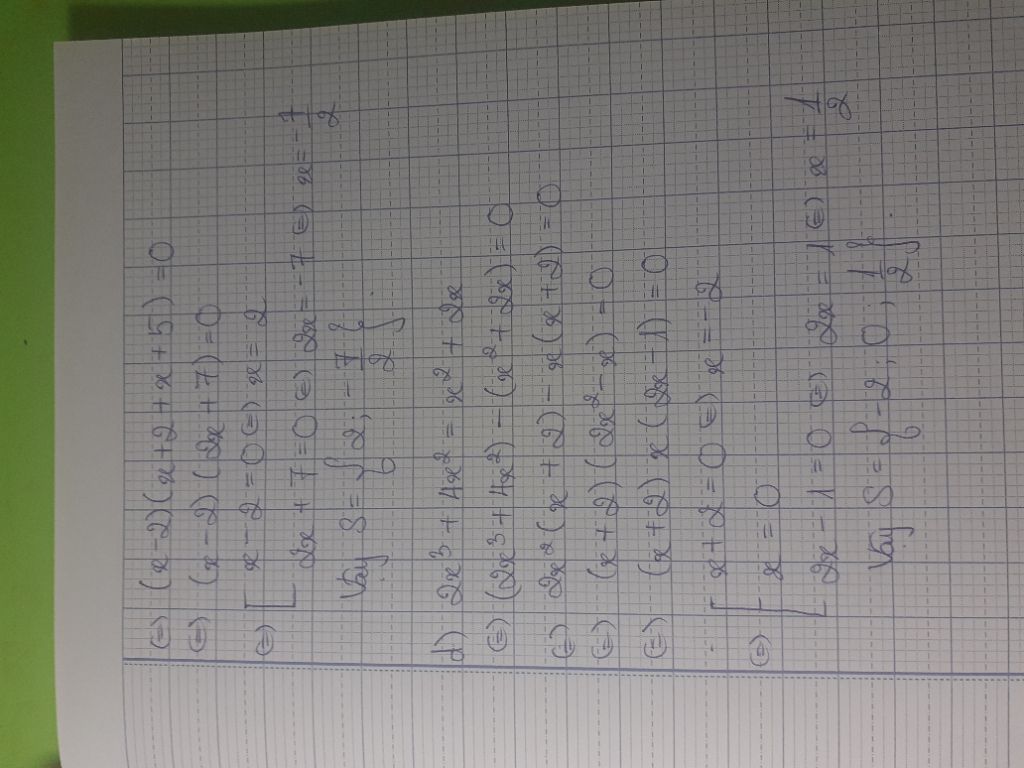 (=) (x-2)(x+2+x+5) = 0
(=) (x-2)(2x+7) = 0
(=) [ x-2 = 0 (=) x = 2
2x+7 = 0 (=) 2x = -7 (=) x = -7/2
Vậy S = {2; -7/2}.
d) 2x³ + 4x² = x² + 2x
(=) (2x³ + 4x²) - (x² + 2x) = 0
(=) 2x²(x+2) - x(x+2) = 0
(=) (x+2)(2x²-x) = 0
(=) (x+2) x (2x-1) = 0
(=) [ x+2 = 0 (=) x = -2
x = 0
2x-1 = 0 (=) 2x = 1 (=) x = 1/2
Vậy S = {-2; 0; 1/2}.